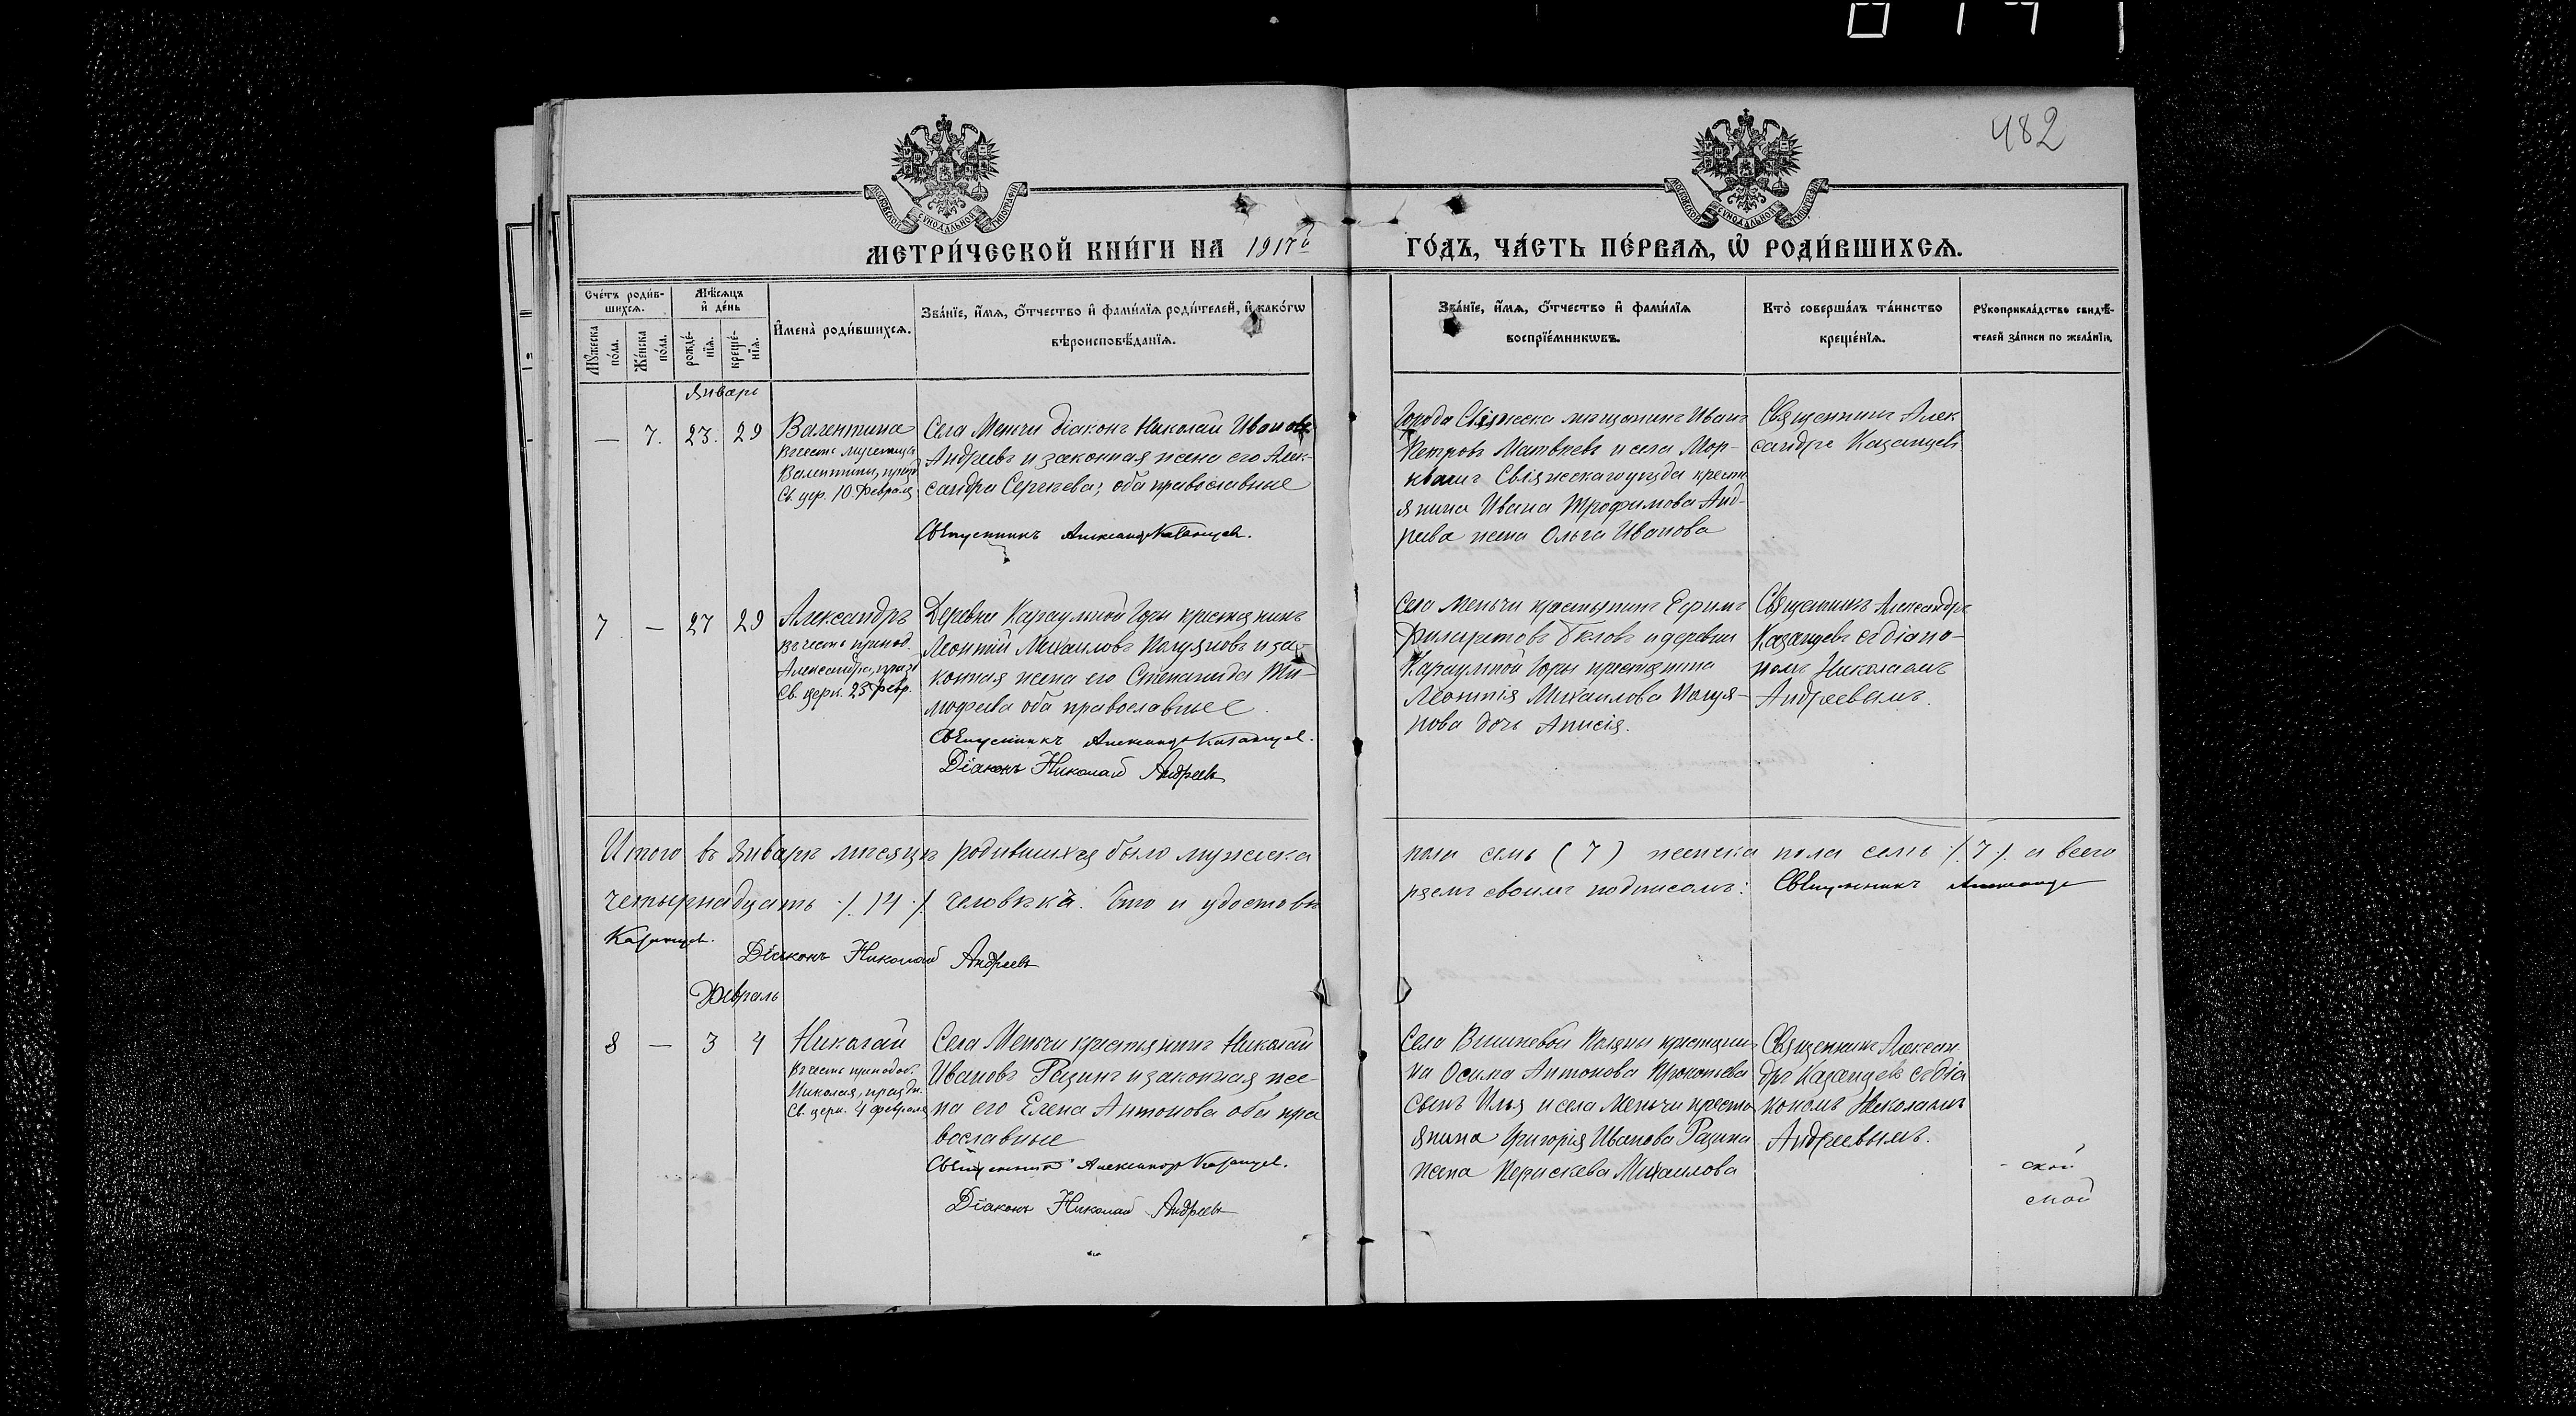 482
МОСКОВСКОЙ СУНОДАЛЬНОЙ ТИПОГРАФІИ
МОСКОВСКОЙ СУНОДАЛЬНОЙ ТИПОГРАФІИ
МЕТРИ́ЧЕСКОЙ КНИ́ГИ НА 1917й ГО́ДЪ, ЧА́СТЬ ПЕ́РВАѦ, Ѡ РОДИ́ВШИХСѦ.
Сче́тъ роди́в-
шихсѧ.
Мꙋ́жеска
по́ла.
Же́нска
по́ла.
Мѣ́сѧцъ
и҆ де́нь
рожде́-
нїѧ.
креще́-
нїѧ.
И҆мена̀ роди́вшихсѧ.
Зва́нїе, и҆́мѧ, ѻ҆́тчество и҆ фами́лїѧ роди́телей, и҆ како́гѡ
вѣроисповѣ́данїѧ.
Зва́нїе, и҆́мѧ, ѻ҆́тчество и҆ фами́лїѧ
воспрїе́мникѡвъ.
Кто̀ соверша́лъ та́инство
креще́нїѧ.
Рꙋкоприкла́дство свидѣ́-
телей за́писи по жела́нїю.
Январь
— 7. 23. 29
Валентина
въ честь мученицы
Валентины, празд
Св. цер. 10 Февраля
Села Менчи діаконъ Николай Иванов
Андреевъ и законная жена его Алек-
сандра Сергеева; оба православные
Священникъ Александръ Казанцев.
Города Свіяжска мещанинъ Иванъ
Петровъ Матвеевъ и села Мор-
квашъ Свіяжскаго уезда крестьянина Ивана Трофимова Анд-
реева жена Ольга Иванова
Священникъ Алек
сандръ Казанцевъ
7 — 27 29
Александръ
въ честь препод.
Александра, празд
Св. церк. 23 февр.
Деревни Караульной Горы крестьянинъ
Леонтій Михаиловъ Полуяновъ и за-
конная жена его Степанида Ти-
мофеева оба православные.
Священникъ Александръ Казанцев.
Діаконъ Николай Андреевъ
Села Менчи крестьянинъ Ефимъ
Филаретовъ Бѣловъ и деревни
Караульной Горы крестьянина
Леонтія Михаилова Полуя-
нова дочь Анисія.
Священникъ Александръ
Казанцевъ съ діако-
номъ Николаемъ
Андреевымъ.
Итого въ Январѣ мѣсяцѣ родившихся было мужеска пола семь (7) женска пола семь ./.7./. а всего
четырнадцать ./.14./. человѣка. Что и удостовѣряемъ своимъ подписомъ: Священникъ Александръ
Казанцев. Діаконъ Николай Андреевъ
Февраль
8 — 3 4
Николай
въ честь преподоб.
Николая, праздн.
Св. церк. 4 февраля
Села Менчи крестьянинъ Николай
Ивановъ Разинъ и законная же-
на его Елена Антонова оба пра
вославные
Священникъ Александръ Казанцев.
Діаконъ Николай Андреевъ
Села Вишневой Поляны крестьяни-
на Осипа Антонова Прокопьева
сынъ Илья и села Менчи крестьянина Григорія Иванова Разина
жена Перескева Михаилова
Священникъ Алексан
дръ Казанцевъ съ діа
кономъ Николаемъ
Андреевымъ.
- ской
ской